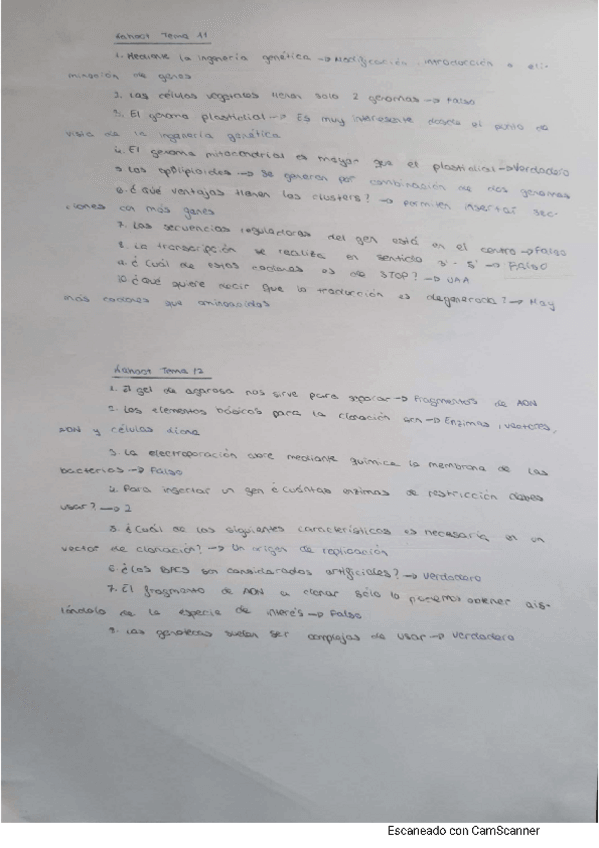 Kahoot Tema 11
1. Mediante la ingeniería genética → Modificación, introducción o eli-
minación de genes
2. Las células vegetales tienen solo 2 genomas → Falso
3. El genoma plastidial → Es muy interesante desde el punto de
vista de la ingeniería genética
4. El genoma mitocondrial es mayor que el plastidial → Verdadero
5. Los aploploides → Se generan por combinación de dos genomas
6. ¿Qué ventajas tienen los clusters? → permiten insertar sec-
ciones con más genes
7. Las secuencias reguladoras del gen está en el centro → Falso
8. La transcripción se realiza en sentido 3' - 5' → FALSO
9. ¿Cuál de estos codones es de STOP? → UAA
10. ¿Qué quiere decir que la traducción es degenerada? → Hay
más codones que aminoácidos
Kahoot Tema 12
1. El gel de agarosa nos sirve para separar → Fragmentos de ADN
2. Los elementos básicos para la clonación son → Enzimas, vectores,
ADN y células diana
3. La electroporación abre mediante química la membrana de las
bacterias → Falso
4. Para insertar un gen ¿cuántas enzimas de restricción debes
usar? → 2
5. ¿Cuál de las siguientes características es necesaria en un
vector de clonación? → Un origen de replicación
6. ¿Los BACS son considerados artificiales? → Verdadero
7. El fragmento de ADN a clonar sólo lo podemos obtener ais-
lándolo de la especie de interés → Falso
8. Las genotecas suelen ser complejas de usar → Verdadero
Escaneado con CamScanner